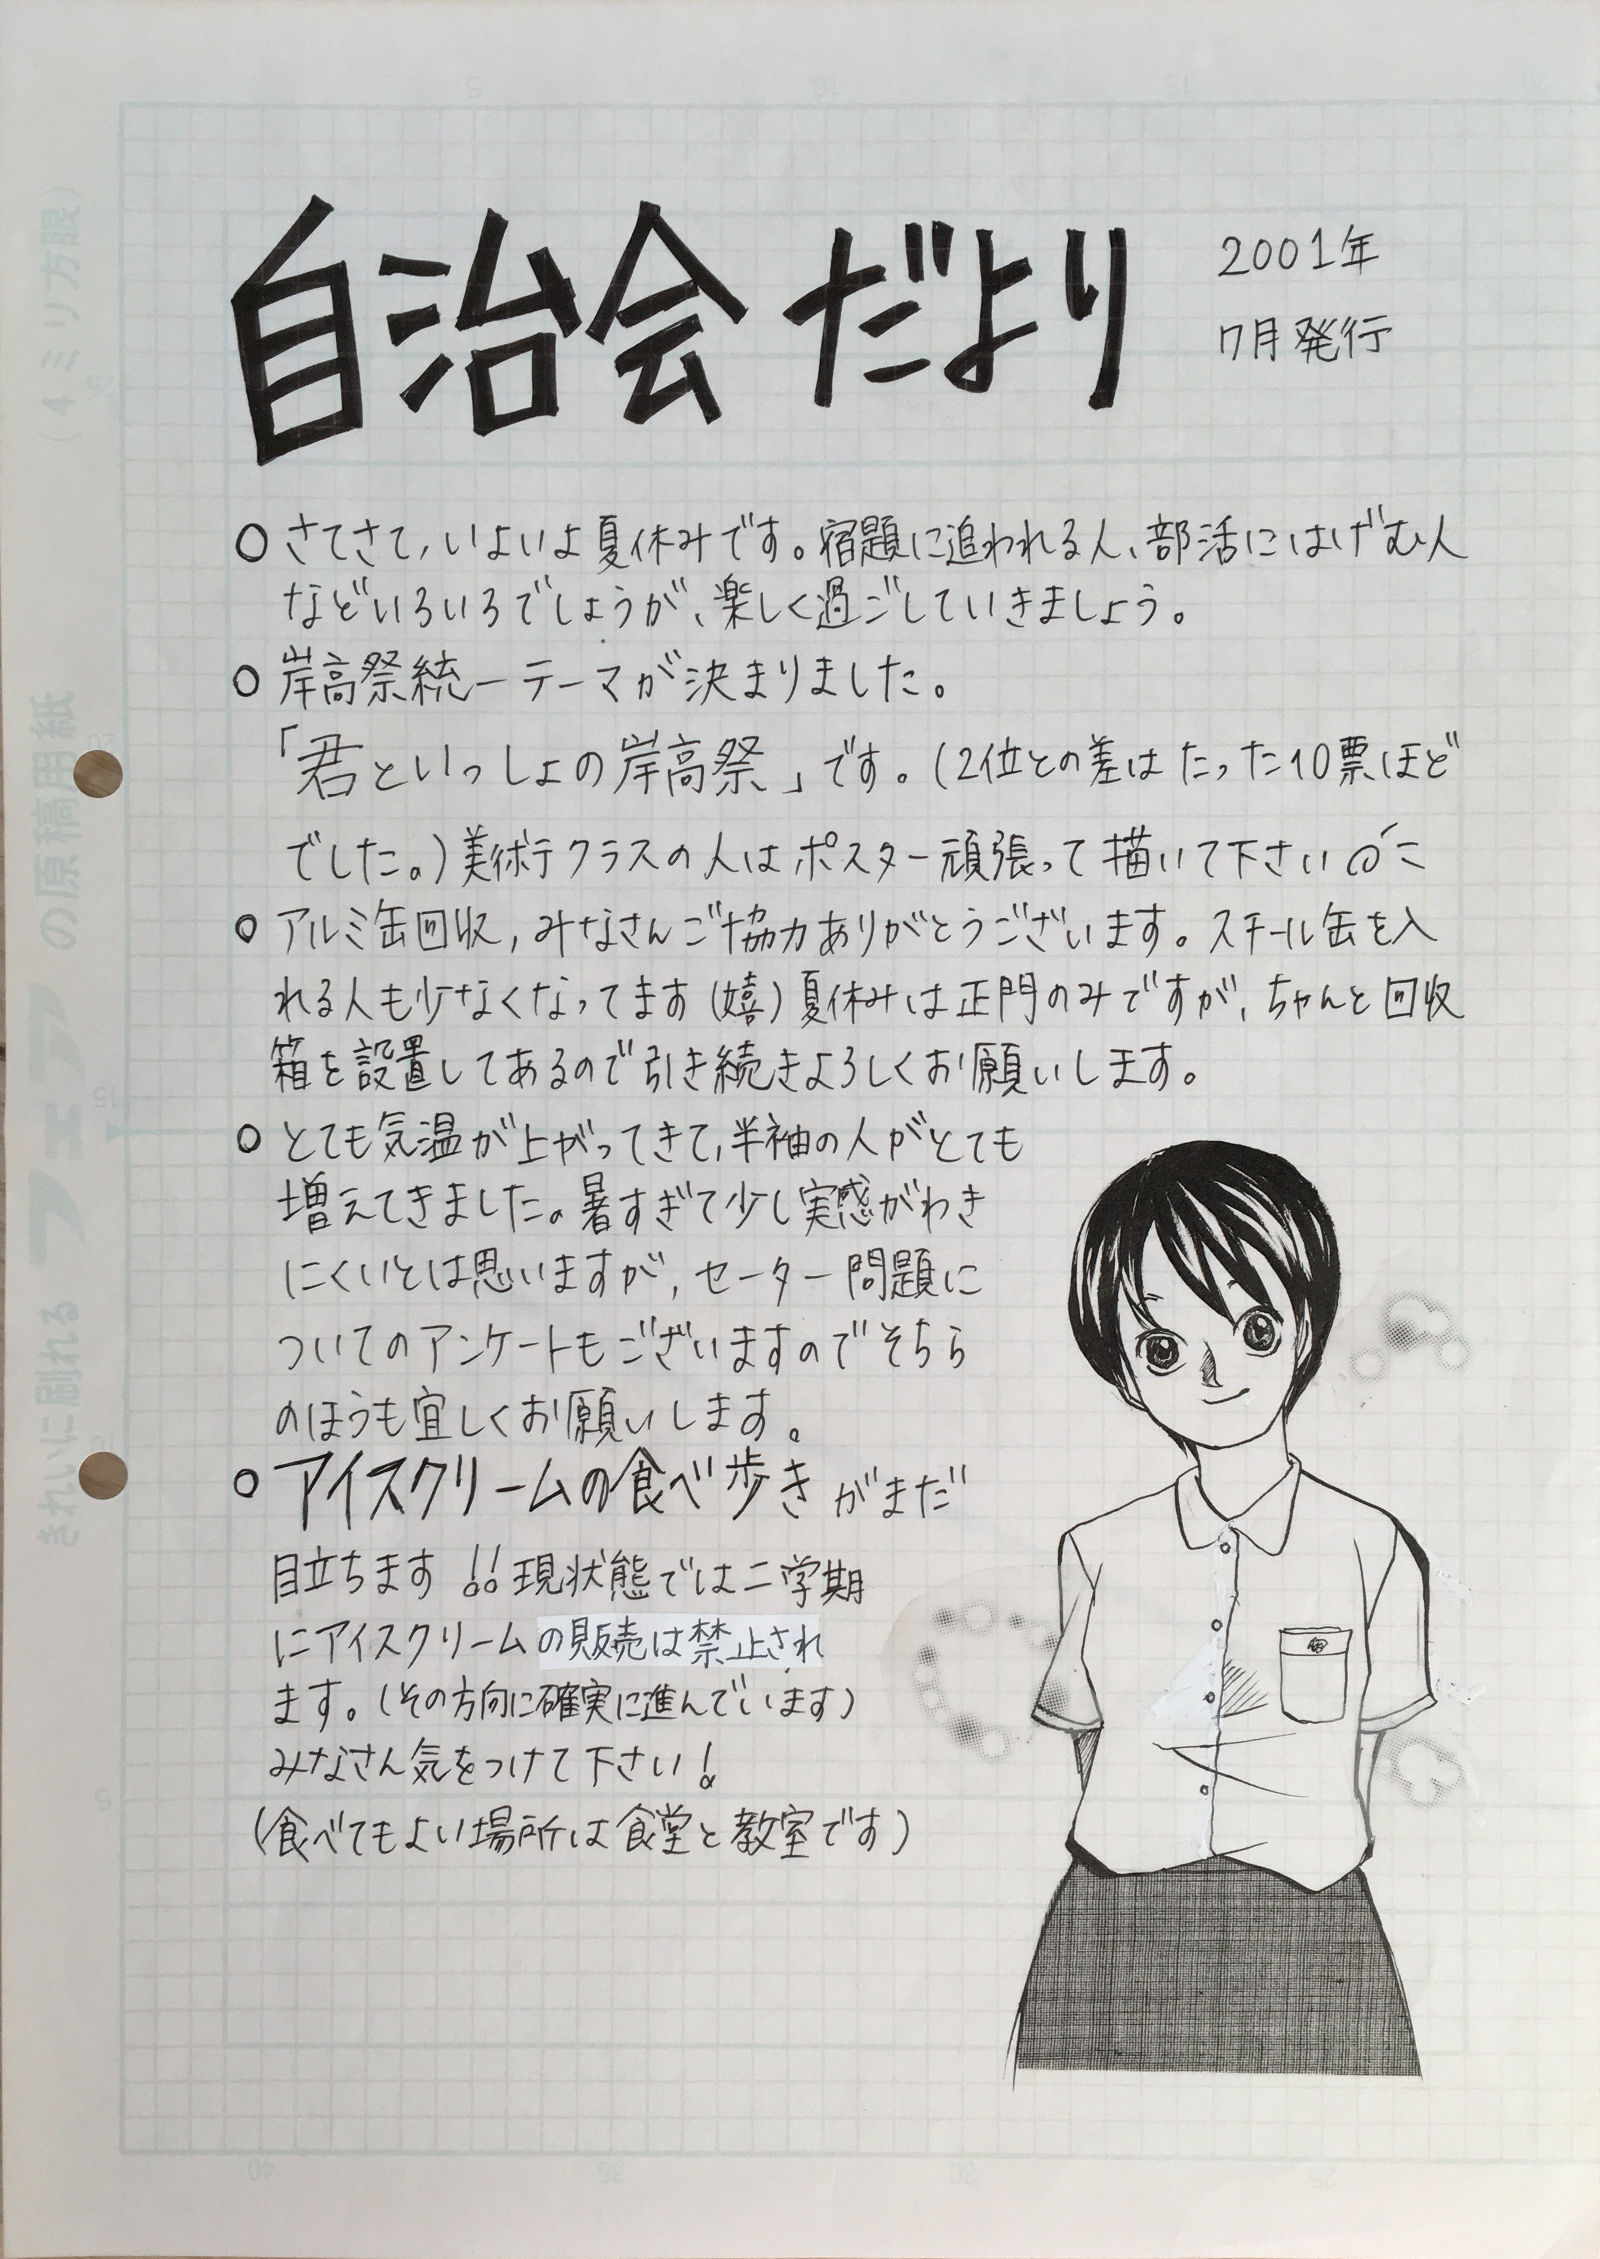 自治会だより
2001年
7月発行
○さてさて,いよいよ夏休みです。宿題に追われる人、部活にはげむ人
などいろいろでしょうが、楽しく過ごしていきましょう。
○岸高祭統一テーマが決まりました。
「君といっしょの岸高祭」です。(2位との差はたった10票ほど
でした。)美術テクラスの人はポスター頑張って描いて下さい
○アルミ缶回収,みなさんご協力ありがとうございます。スチール缶を入
れる人も少なくなってます(嬉)夏休みは正門のみですが,ちゃんと回収
箱を設置してあるので引き続きよろしくお願いします。
○とても気温が上がってきて,半袖の人がとても
増えてきました。暑すぎて少し実感がわき
にくいとは思いますが,セーター問題に
ついてのアンケートもございますのでそちら
のほうも宜しくお願いします。
○アイスクリームの食べ歩きがまだ
目立ちます!!現状態では二学期
にアイスクリームの販売は禁止され
ます。(その方向に確実に進んでいます)
みなさん気をつけて下さい!
(食べてもよい場所は食堂と教室です)
(4ミリ方眼)
の原稿用紙
きれいに刷れる